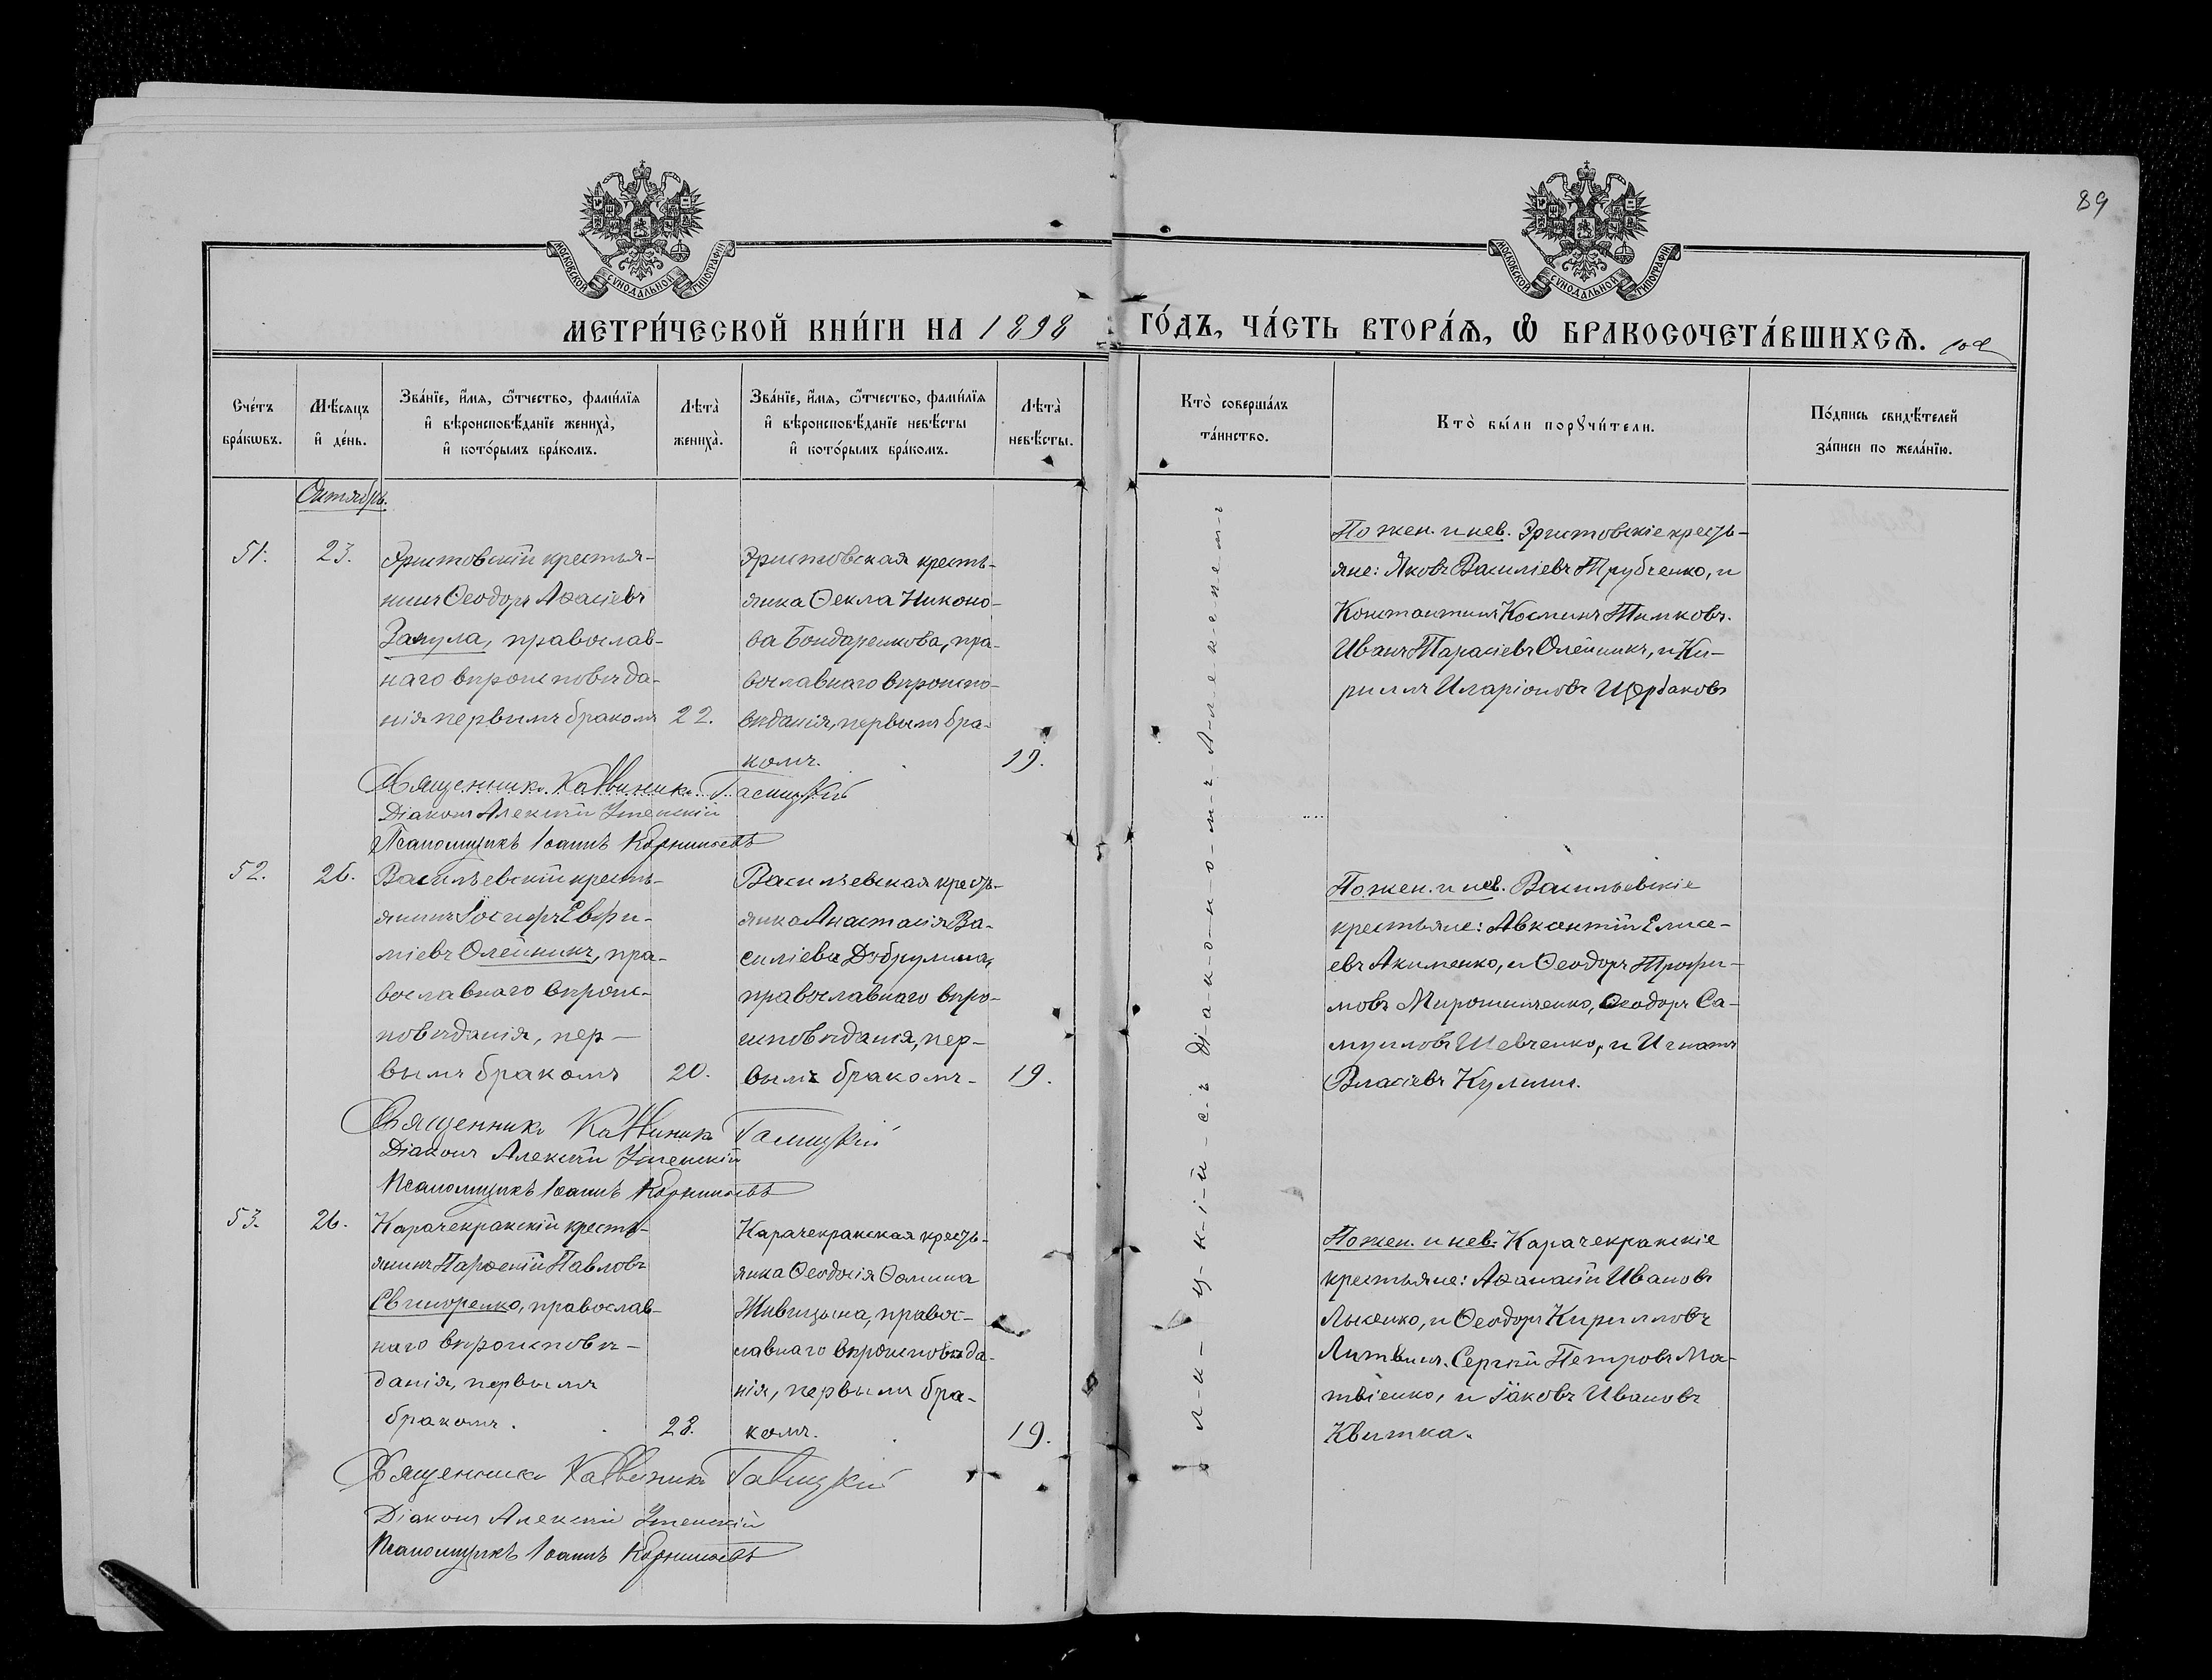 89
МОСКОВСКОЙ СѴНОДАЛЬНОЙ ТИПОГРАФІИ
МОСКОВСКОЙ СѴНОДАЛЬНОЙ ТИПОГРАФІИ
МЕТРИ́ЧЕСКОЙ КНИ́ГИ НА 1898
ГО́ДЪ, ЧА́СТЬ ВТОРА́Ѧ, Ѽ БРАКОСОЧЕТА́ВШИХСѦ.
Сче́тъ бра́кωвъ.
Мѣ́сяцъ и҆ де́нь.
Зва́нїе, и҆́мѧ, ѻ҆́тчество, фами́лїѧ
и҆ вѣроисповѣ́данїе жениха̀,
и҆ кото́рымъ бра́комъ.
Лѣта̀ жениха̀.
Зва́нїе, и҆́мѧ, ѻ҆́тчество, фами́лїѧ
и҆ вѣроисповѣ́данїе невѣ́сты
и҆ кото́рымъ бра́комъ.
Лѣта̀ невѣ́сты.
Кто̀ соверша́лъ та́инство.
Кто̀ бы́ли порꙋчи́тели.
По́дпись свидѣ́телей
за́писи по жела́нїю.
Октябрь.
51.
23.
Эристовскій крестья-
нинъ Ѳеодоръ Аѳасіевъ
Запула, православ-
наго вѣроисповѣда-
нія первымъ бракомъ
22.
Эристовская кресть-
янка Ѳекла Никоно-
ва Бондаренкова, пра-
вославнаго вѣроиспо-
вѣданія, первымъ бра-
комъ.
19.
По жен. и нев. Эристовскіе кресть-
яне: Яковъ Василіевъ Трубченко, и
Константинъ Косминъ Тимковъ.
Иванъ Тарасіевъ Олейникъ, и Ки-
риллъ Иларіоновъ Щербаковъ
Священникъ Каллиникъ Галицкій
Діаконъ Алексій
Псаломщикъ Іоаннъ Корнильевъ
52.
26.
Васильевскій кресть-
янинъ Іосифъ Евфи-
міевъ Олейникъ, пра-
вославнаго вѣроис-
повѣданія, пер-
вымъ бракомъ
20.
Васильевская кресть-
янка Анастасія Ва-
силіева
православнаго вѣро-
исповѣданія, пер-
вымъ бракомъ.
19.
По жен. и нев. Васильевскіе
крестьяне: Авксентій Елисе-
евъ Акименко, и Ѳеодоръ Трофи-
мовъ Мирошниченко, Ѳеодоръ Са-
муиловъ Шевченко, и Игнатъ
Власіевъ Кулишъ.
Священникъ Каллиникъ Галицкій
Діаконъ Алексій
Псаломщикъ Іоаннъ Корнильевъ
53.
26.
Карачекракскій кресть-
янинъ Парѳеній Павловъ
Свиноренко, православ-
наго вѣроисповѣ-
данія, первымъ
бракомъ.
28.
Карачекракская кресть-
янка Ѳеодосія Ѳомина
Живицына, правос-
лавнаго вѣроисповѣда-
нія, первымъ бра-
комъ.
19.
По жен. и нев. Карачекракскіе
крестьяне: Аѳанасій Ивановъ
Лысенко, и Ѳеодоръ Кирилловъ
Литвинъ. Сергій Петровъ Ма-
твіенко, и Іаковъ Ивановъ
Квитка.
Священникъ Каллиникъ Галицкій
Діаконъ Алексій
Псаломщикъ Іоаннъ Корнильевъ